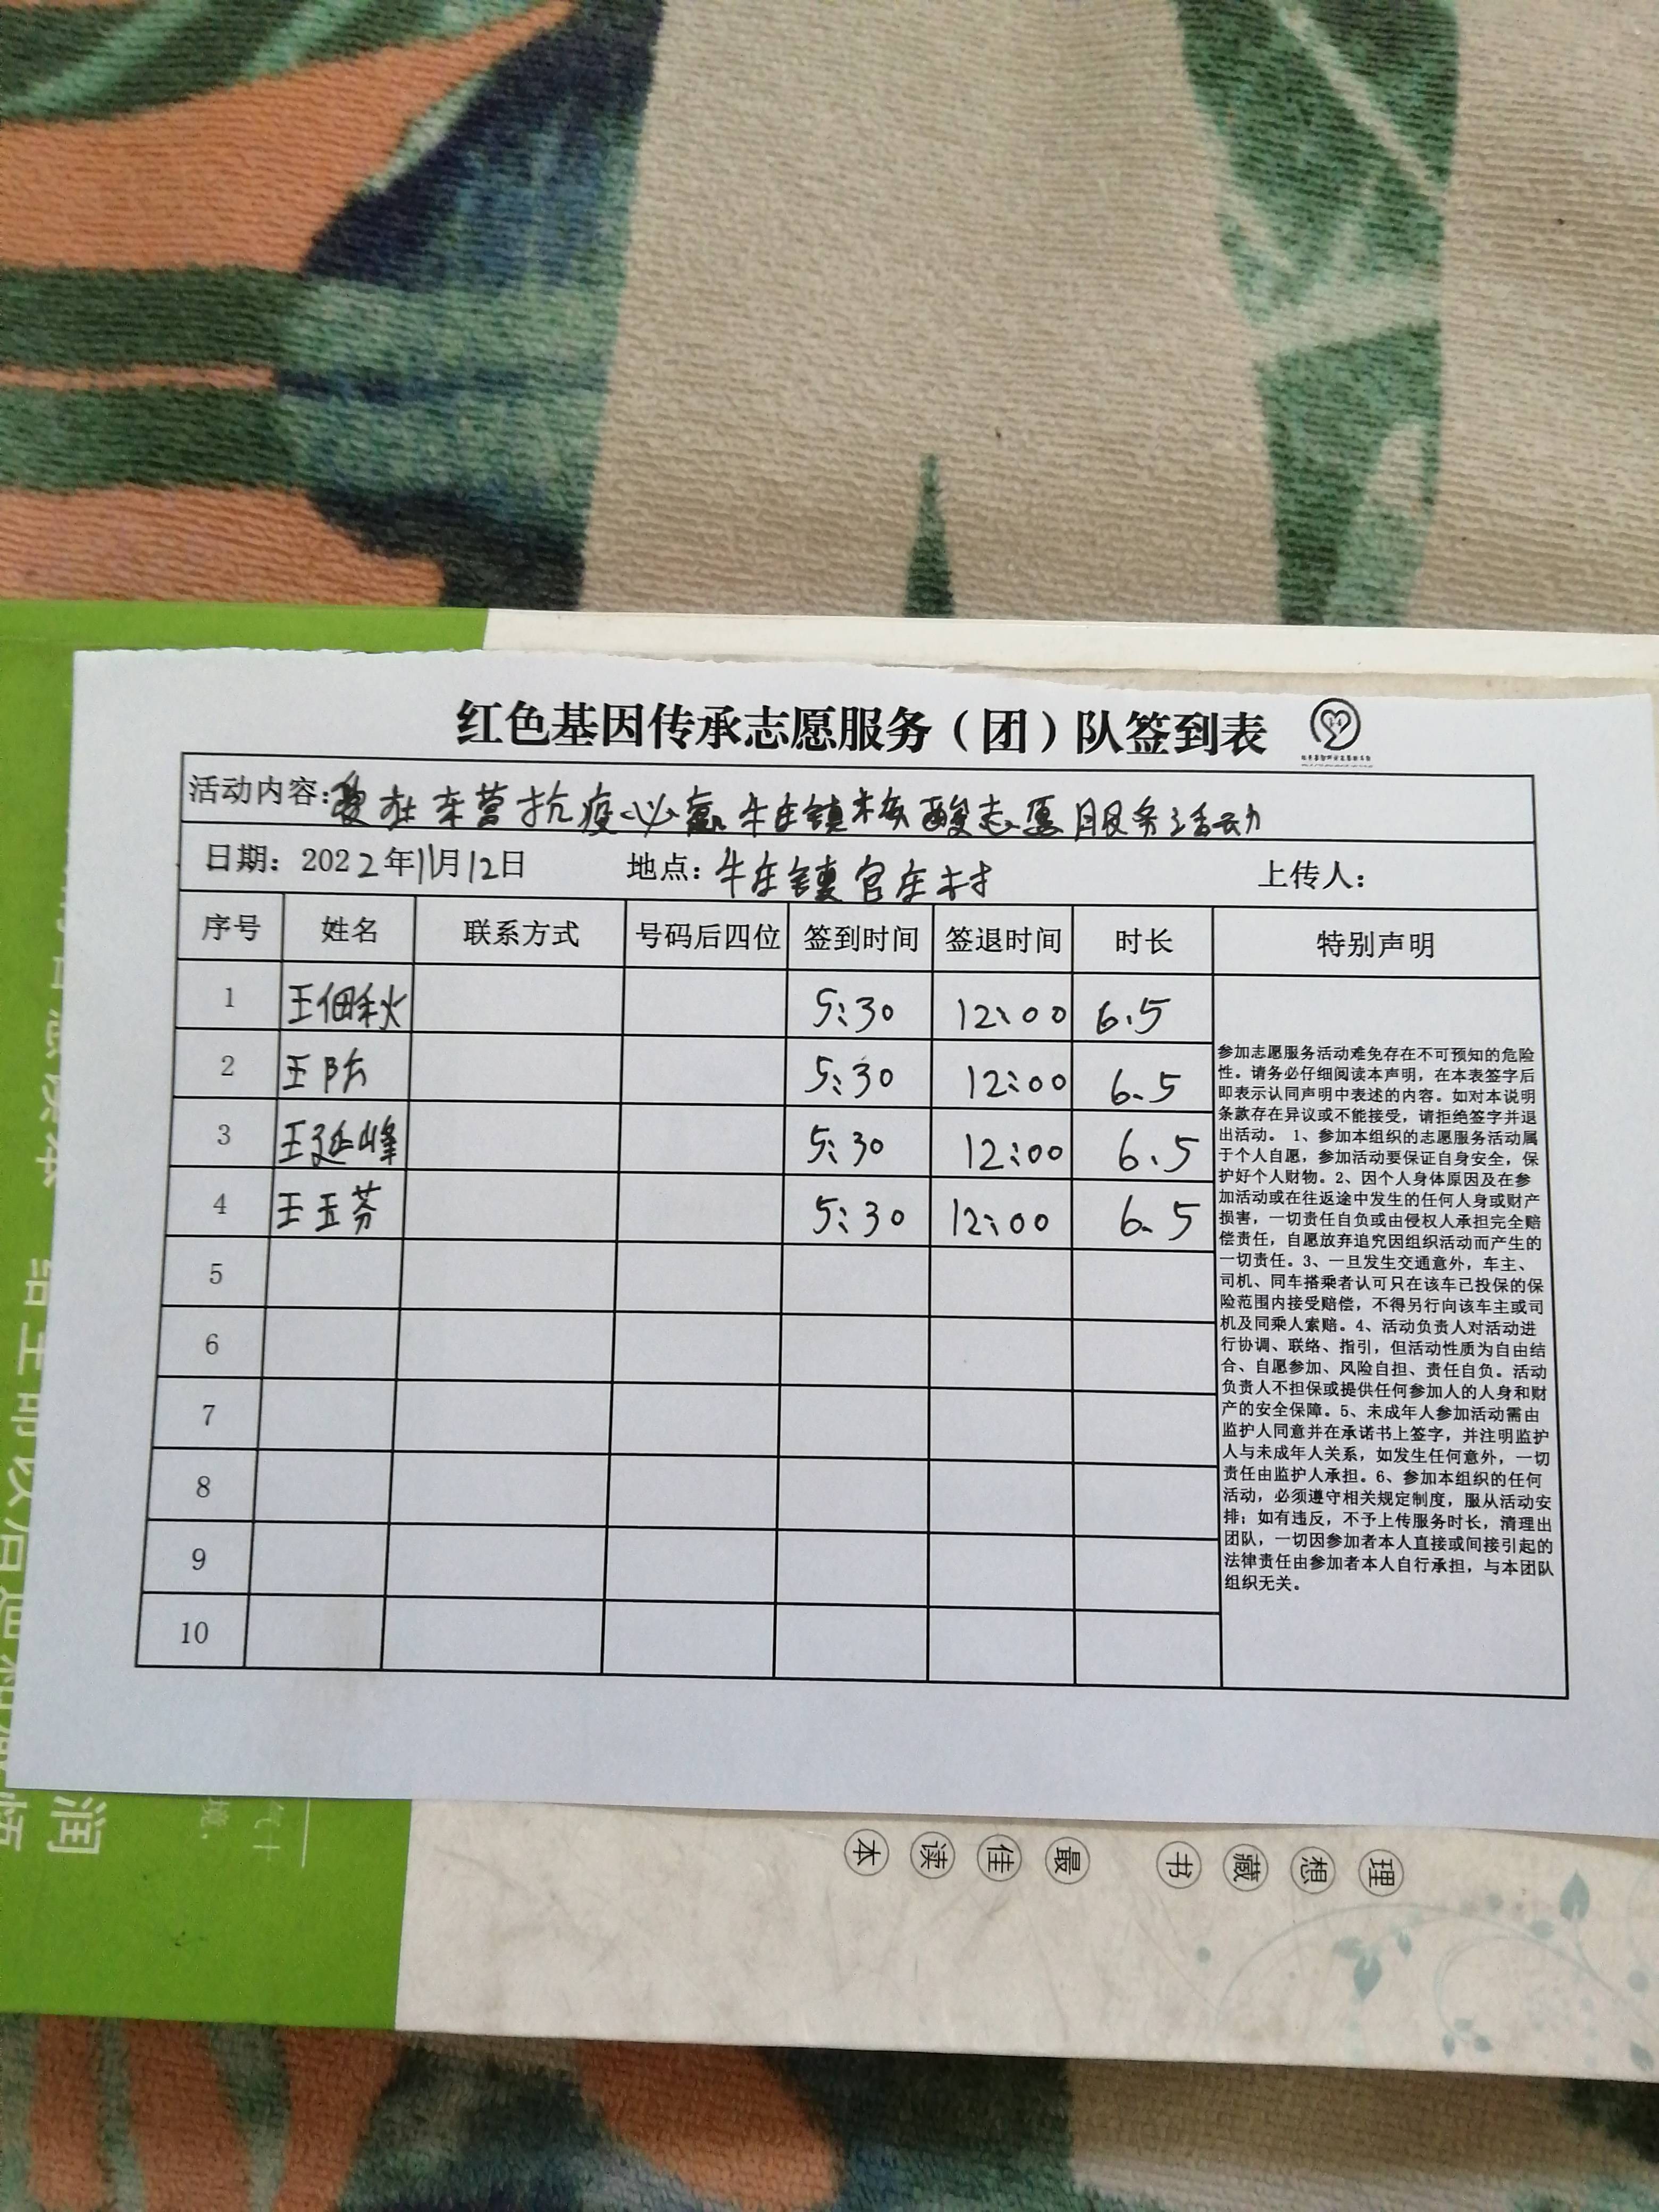 红色基因传承志愿服务（团）队签到表
活动内容：我在东营抗疫必赢牛庄镇核酸志愿服务活动
日期：2022年11月12日 地点：牛庄镇官庄村 上传人：
序号 姓名 联系方式 号码后四位 签到时间 签退时间 时长 特别声明
1 王佃秋 5:30 12:00 6.5
2 王防 5:30 12:00 6.5
3 王延峰 5:30 12:00 6.5
4 王玉芬 5:30 12:00 6.5
5
6
7
8
9
10
参加志愿服务活动难免存在不可预知的危险
性。请务必仔细阅读本声明，在本表签字后
即表示认同声明中表述的内容。如对本说明
条款存在异议或不能接受，请拒绝签字并退
出活动。 1、参加本组织的志愿服务活动属
于个人自愿，参加活动要保证自身安全，保
护好个人财物。2、因个人身体原因及在参
加活动或在往返途中发生的任何人身或财产
损害，一切责任自负或由侵权人承担完全赔
偿责任，自愿放弃追究因组织活动而产生的
一切责任。3、一旦发生交通意外，车主、
司机、同车搭乘者认可只在该车已投保的保
险范围内接受赔偿，不得另行向该车主或司
机及同乘人索赔。4、活动负责人对活动进
行协调、联络、指引，但活动性质为自由结
合、自愿参加、风险自担、责任自负。活动
负责人不担保或提供任何参加人的人身和财
产的安全保障。5、未成年人参加活动需由
监护人同意并在承诺书上签字，并注明监护
人与未成年人关系，如发生任何意外，一切
责任由监护人承担。6、参加本组织的任何
活动，必须遵守相关规定制度，服从活动安
排；如有违反，不予上传服务时长，清理出
团队，一切因参加者本人直接或间接引起的
法律责任由参加者本人自行承担，与本团队
组织无关。
理想藏书 最佳读本
润